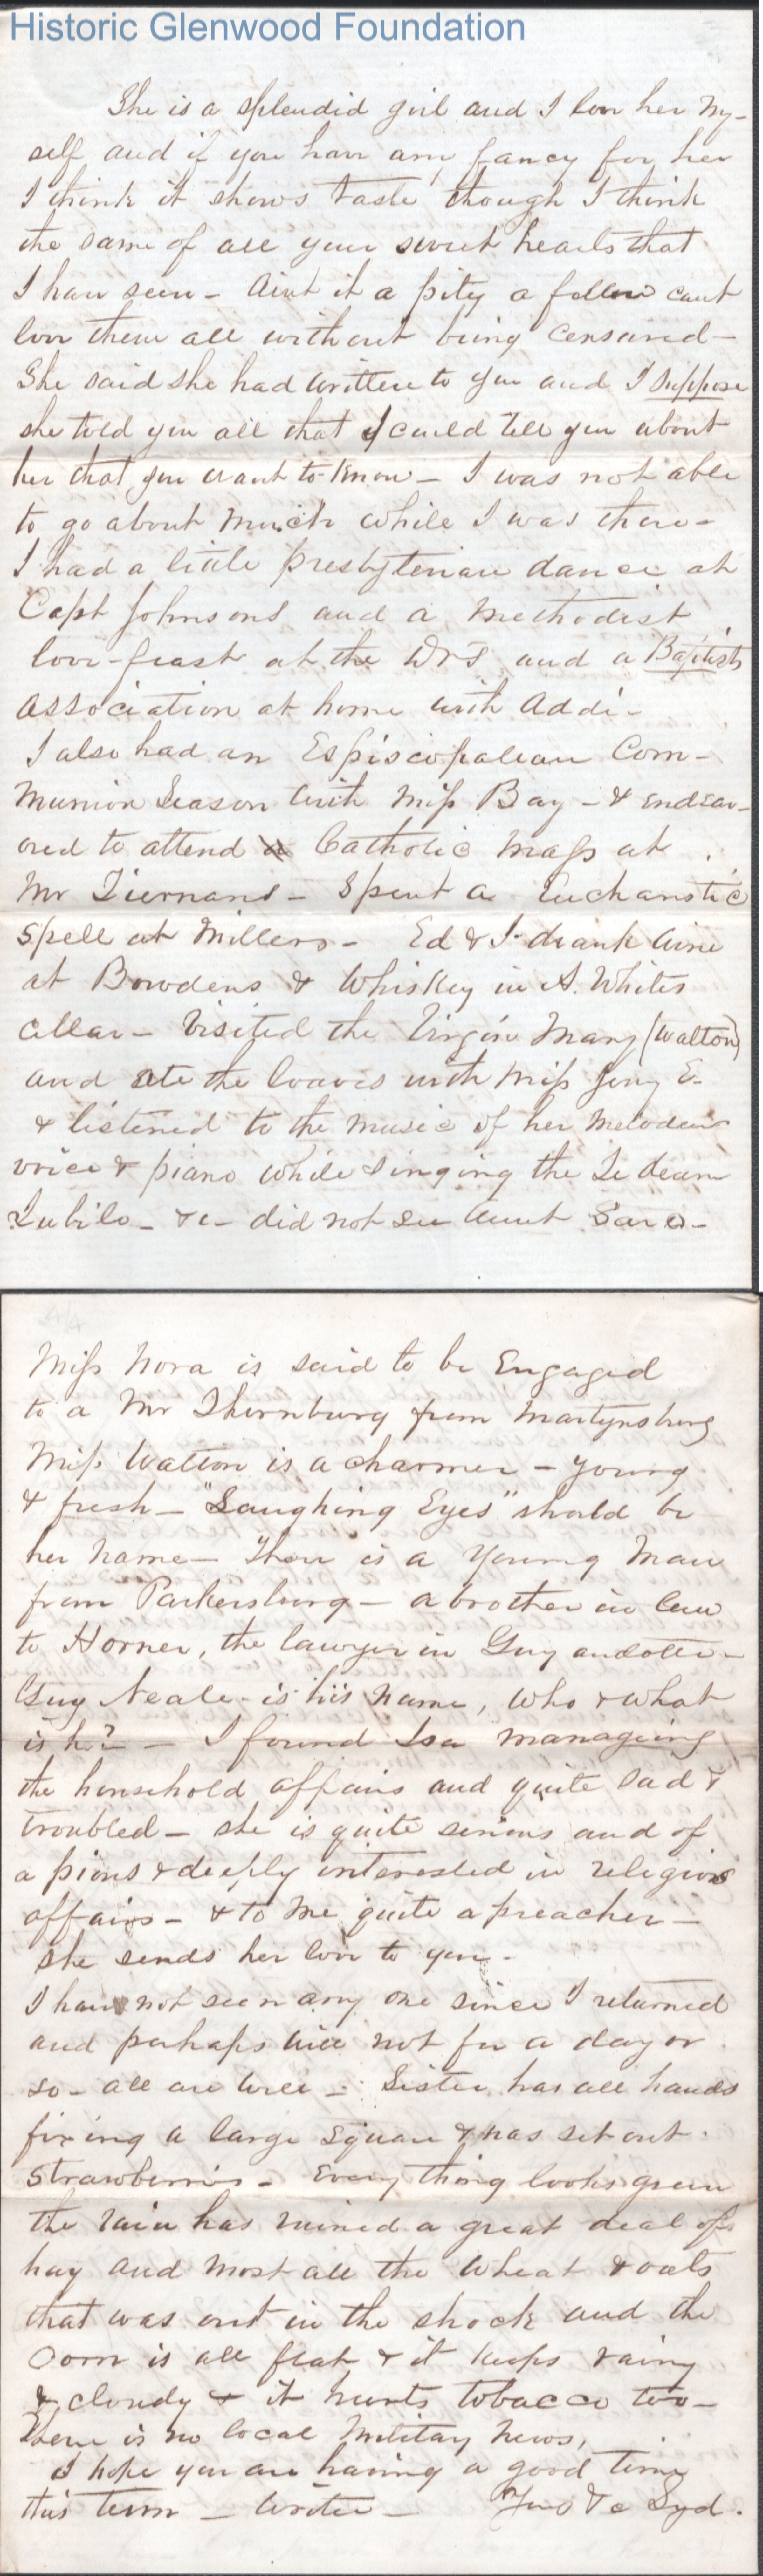 Historic Glenwood Foundation
She is a splendid girl and I love her my-
self and if you have any fancy for her
I think it shows taste though I think
the same of all your sweet hearts that
I have seen - Aint it a pity a fellow cant
love them all without being censured -
She said she had written to you and I suppose
she told you all that I could tell you about
her that you want to know - I was not able
to go about much while I was there -
I had a little presbyterian dance at
Capt Johnsons and a Methodist
love-feast at the Drs and a Baptists
association at home with Addi -
I also had an Espiscopalean Com-
munion Season with Miss Bay - & endeav-
ored to attend a Catholic Mass at
Mr Tiernans - Spent a Eucharistic
spell at Millers - Ed & I drank wine
at Bowdens & Whiskey in A. Whites
cellar - Visited the Virgin Mary (Walton)
and ate the loaves with Miss Jiny E -
& listened to the music of her melodeus
voice & piano while singing the Te deum
Jubilo - &c - did not see Aunt Sara -
Miss Nora is said to be Engaged
to a Mr Thornburg from Martynsburg
Miss Walton is a charmer - young
& fresh - "Laughing Eyes" should be
her name - There is a Young Man
from Parkersburg - a brother in law
to Horner, the lawyer in Guyandotte -
Guy Neale - is his name, who & what
is he? - I found Isa managing
the household affairs and quite sad &
troubled - she is quite serious and of
a pious & deeply interested in religious
affairs - & to me quite a preacher -
she sends her love to you -
I have not seen any one since I returned
and perhaps will not for a day or
so - all are well - Sister has all hands
fixing a large square & has set out
Strawberries - Every thing looks green
the rain has ruined a great deal of
hay and most all the wheat & oats
that was out in the shock and the
Corn is all flat & it keeps rainy
& cloudy & it hurts tobacco too -
There is no local Military News,
I hope you are having a good time
this term - Write - Syd.